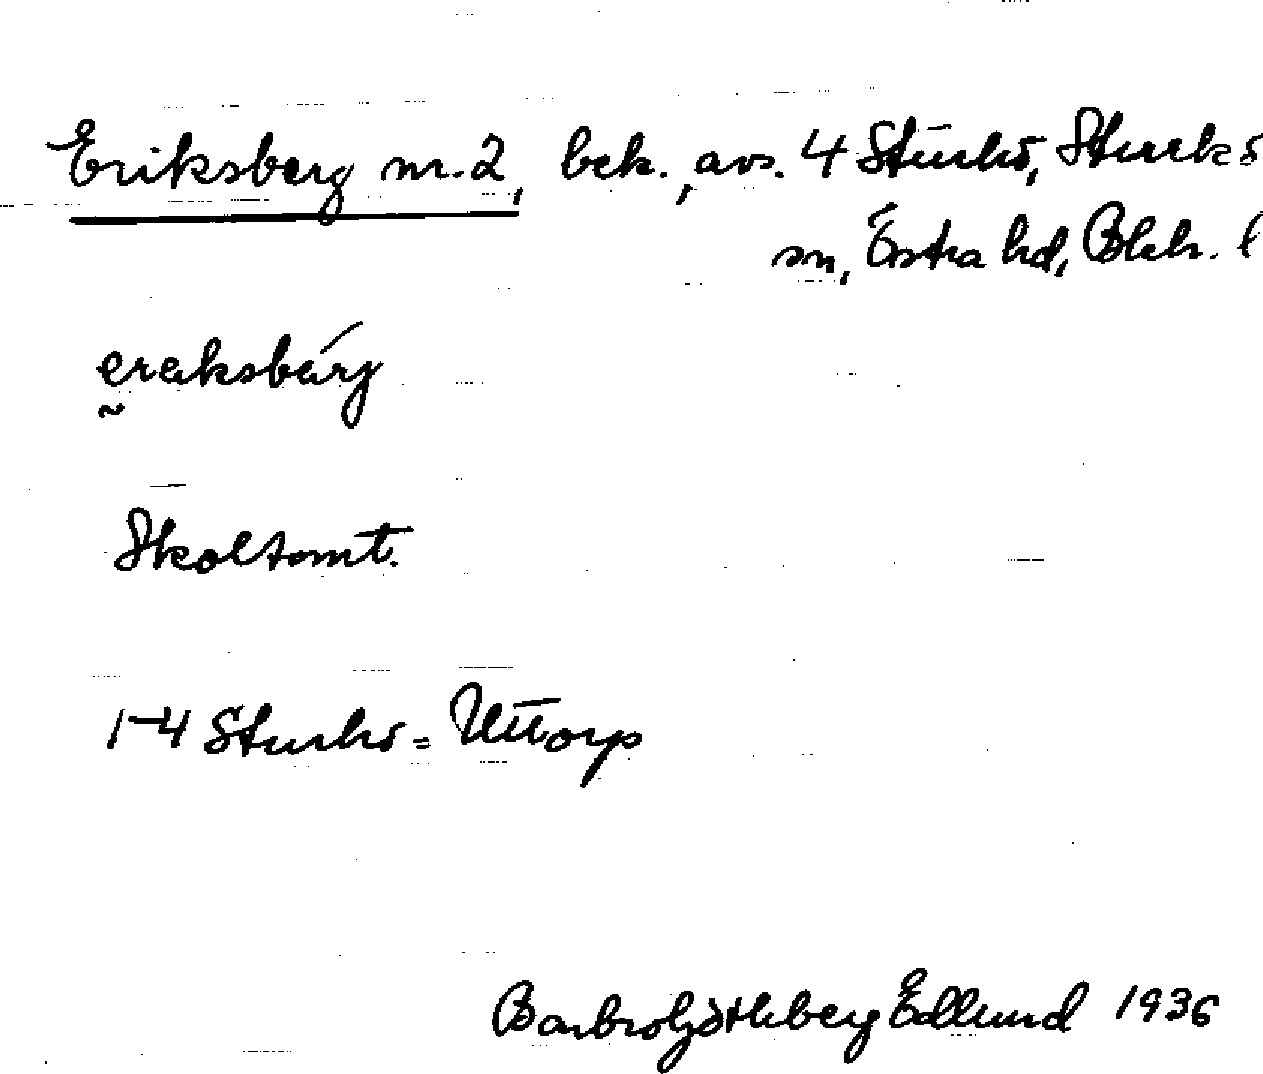 Eriksberg nr.2, bek., avs. 4 Sturkö, Sturkö
sn, Östra hd, Blek. l
eraksbärg
Skoltomt.
1-4 Sturkö = Uttorp
Barbro Götheberg Edlund 1936